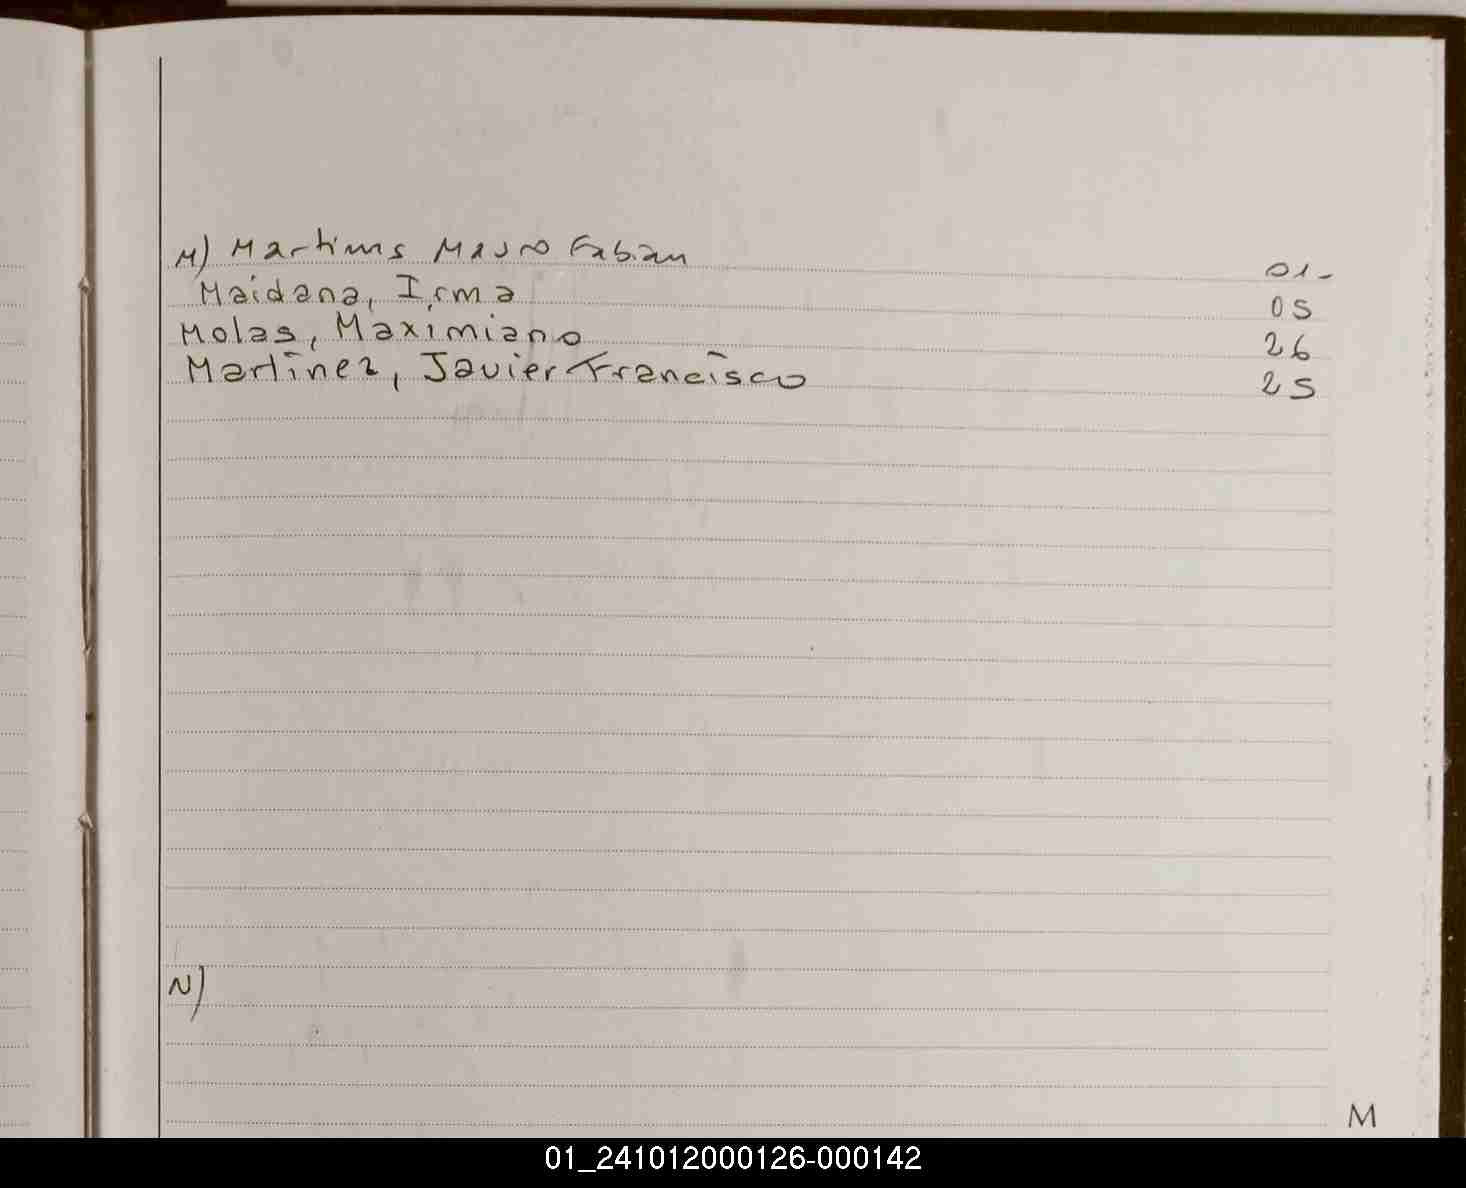 M) Martinns Mauro Fabian 01-
Maidana, Irma 05
Molas, Maximiano 26
Martinez, Javier Francisco 25
N)
M
01_241012000126-000142